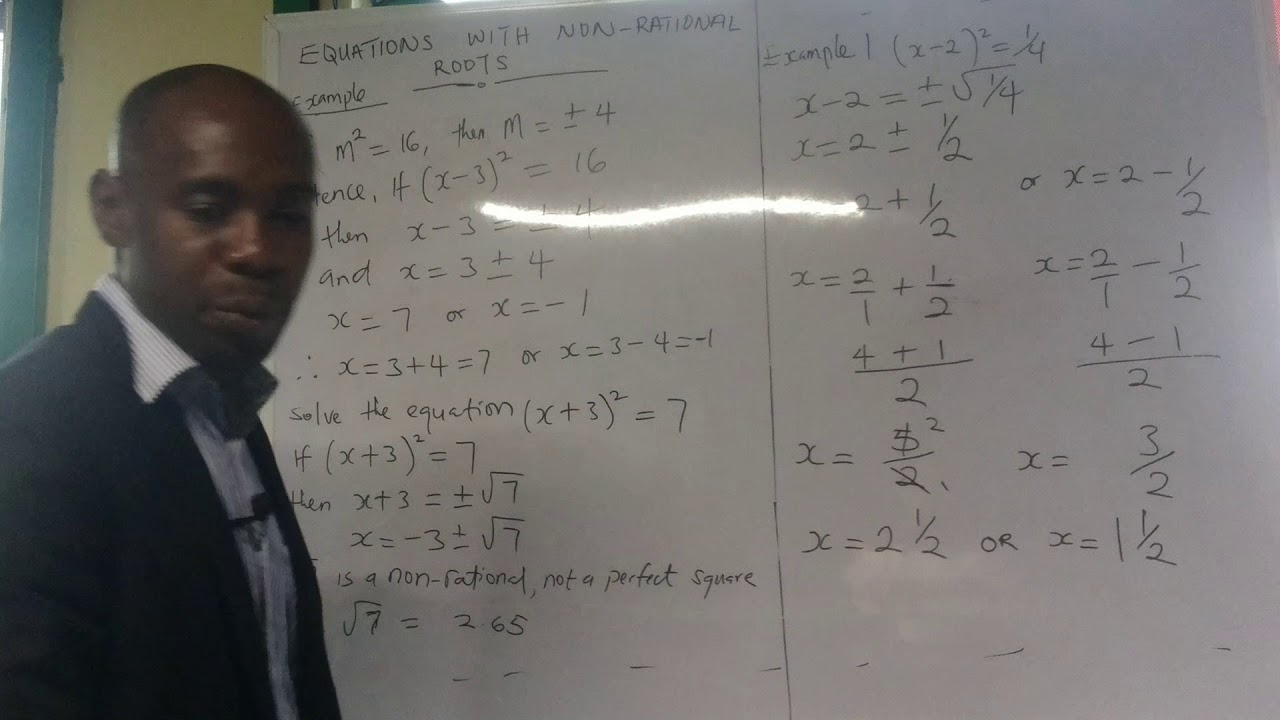 EQUATIONS WITH NON-RATIONAL
ROOTS
Example
m² = 16, then m = ± 4
ence, If (x-3)² = 16
then x - 3 = ± 4
and x = 3 ± 4
x = 7 or x = - 1
∴ x = 3+4 = 7 or x = 3 - 4 = -1
solve the equation (x+3)² = 7
If (x+3)² = 7
then x+3 = ±√7
x = -3 ± √7
is a non-rational, not a perfect square
√7 = 2.65
Example 1 (x-2)² = 1/4
x - 2 = ±√1/4
x = 2 ± 1/2
2 + 1/2 or x = 2 - 1/2
x = 2/1 + 1/2 x = 2/1 - 1/2
4 + 1 4 - 1
2 2
x = 5 2/2 x = 3/2
x = 2 1/2 OR x = 1 1/2